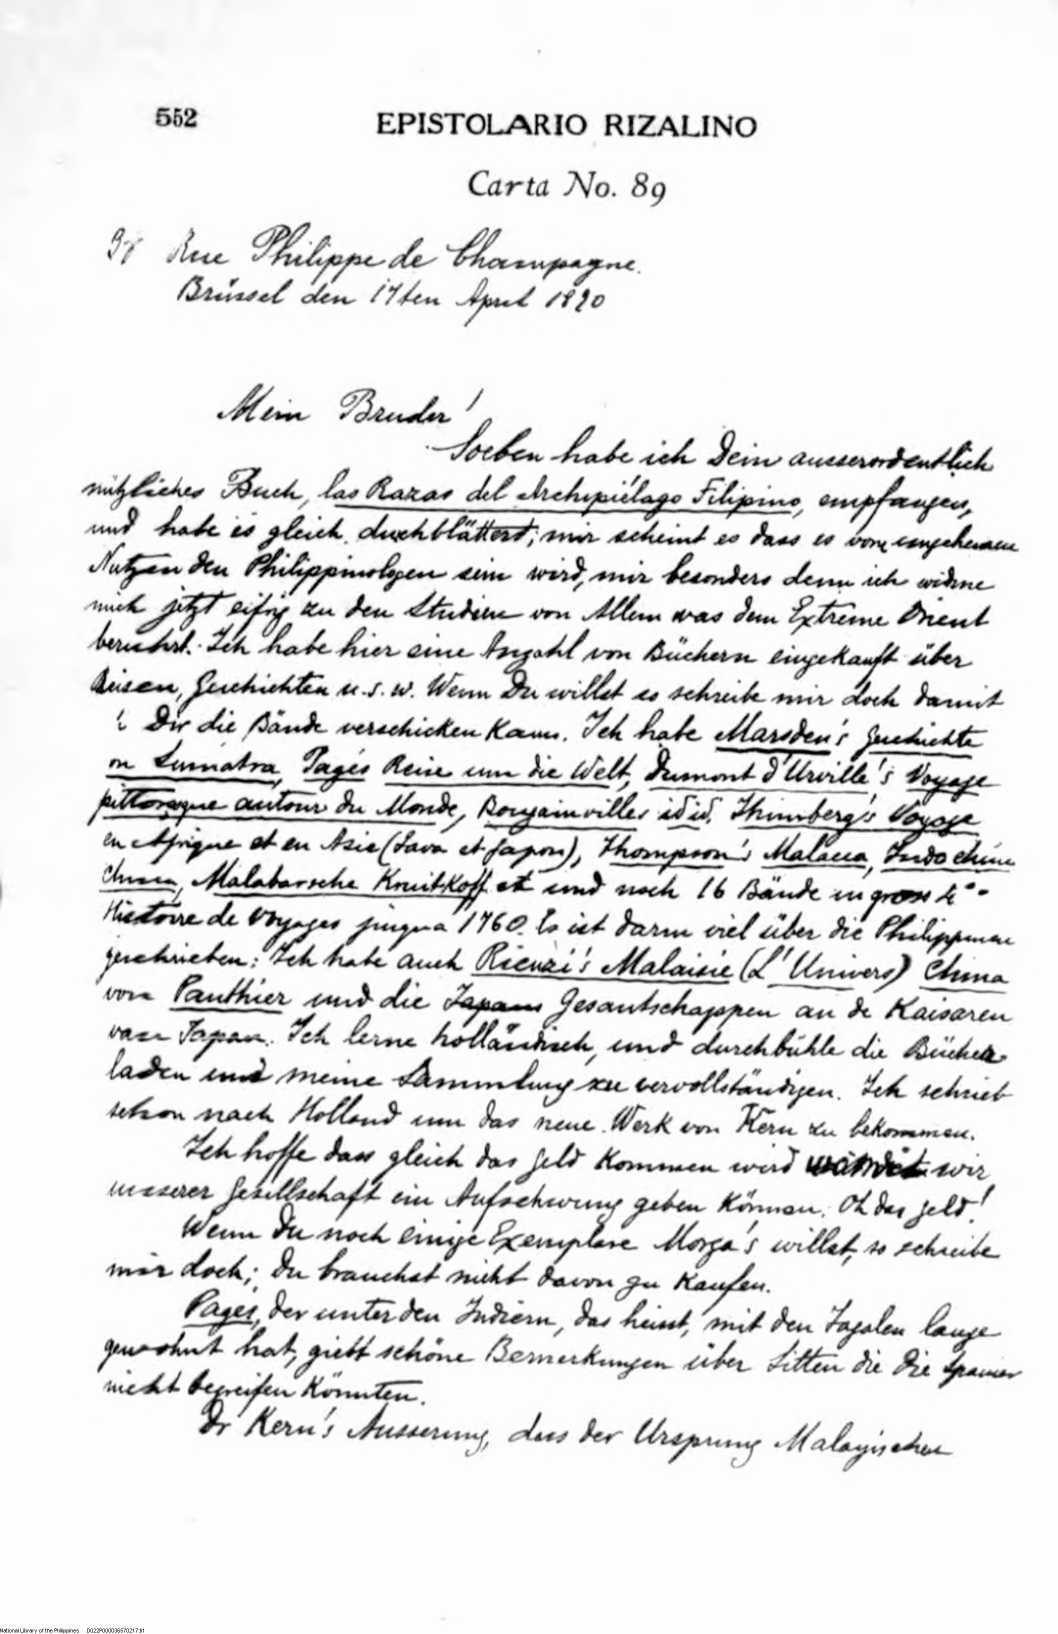 552
EPISTOLARIO RIZALINO
Carta No. 89
38 Rue Philippe de Champagne.
Brüssel den 17ten April 1890
Mein Bruder!
Soeben habe ich Dein ausserordentlich
nützliches Buch, las Razas del Archipiélago Filipino, empfangen,
und habe es gleich durchblättert; mir scheint es dass es von ungeheuren
Nutzen den Philippinologen sein wird, mir besonders denn ich widme
mich jetzt eifrig zu den Studien von Allem was dem Extreme Orient
berührt. Ich habe hier eine Anzahl von Büchern eingekauft über
Reisen, Geschichten u. s. w. Wenn Du willst so schreibe mir doch damit
Dir die Bände verschicken kann. Ich habe Marsden's Geschichte
on Sumatra, Pagés Reise um die Welt, Dumont d'Urville's Voyage
pittoresque autour du Monde, Bougainvilles id id. Thunberg's Voyage
en Afrique et en Asie (Java et Japon), Thompson's Malacca, Indochine
China, Malabarsche und noch 16 Bände in gross 4º -
Histoire de Voyages jusqu'a 1760. Es ist darin viel über die Philippinen
geschrieben: Ich habe auch Rienzi's Malaisie (L'Univers) China
von Pauthier und die Japans Gesantschappen an de Kaisaren
van Japan. Ich lerne holländisch, und durchbühle die Bücher
laden und meine Sammlung zu vervollständigen. Ich schrieb
schon nach Holland um das neue Werk von Kern zu bekommen.
Ich hoffe dass gleich das Geld kommen wird wir
unserer Gesellschaft ein Aufschwung geben können. Oh das Geld!
Wenn Du noch einige Exemplare Morga's willst, so schreibe
mir doch; du brauchst nicht davon zu kaufen.
Pages, der unter den Indiern, das heisst, mit den Tagalen lange
gewohnt hat, giebt schöne Bemerkungen über Sitten die die Spanier
nicht begreifen könnten.
Dr Kern's Äusserung, dass der Ursprung Malayischen
National Library of the Philippines